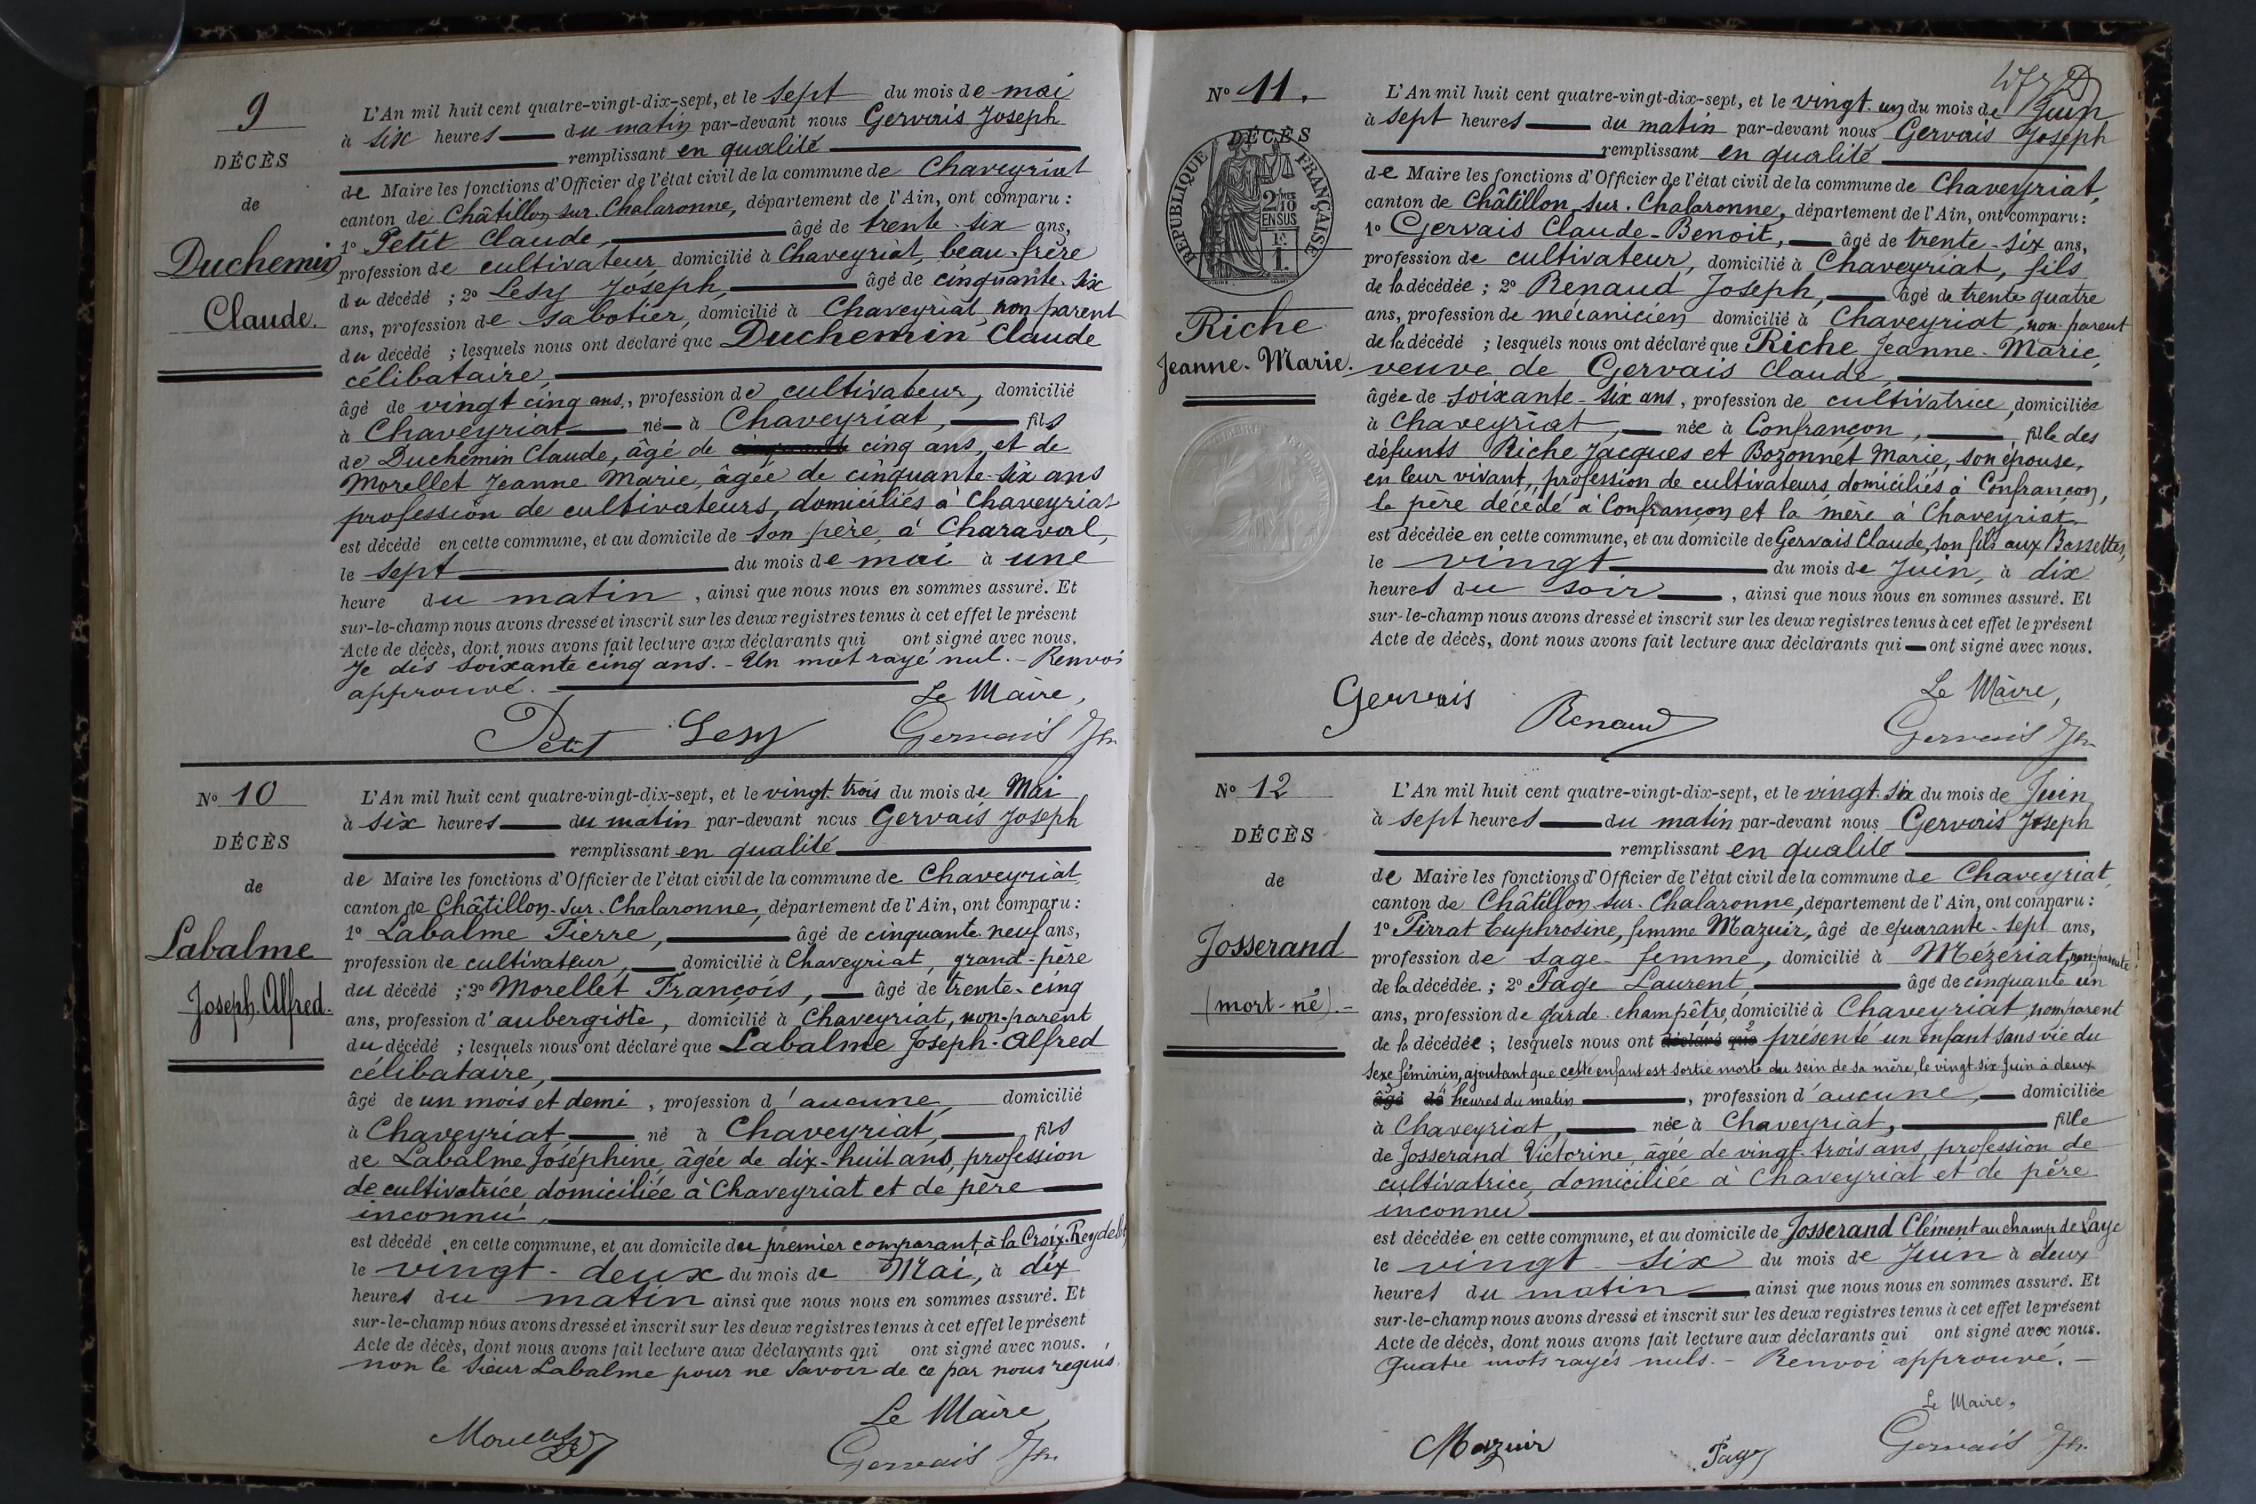 9
DÉCÈS
de
Duchemin
Claude.
L'An mil huit cent quatre-vingt-dix-sept, et le sept du mois de mai
à six heures du matin par-devant nous Gervais Joseph
remplissant en qualité
de Maire les fonctions d'Officier de l'état civil de la commune de Chaveyriat
canton de Châtillon sur. Chalaronne, département de l'Ain, ont comparu :
1o Petit Claude, âgé de trente-six ans,
profession de cultivateur domicilié à Chaveyriat, beau-frère
du décédé ; 2o Lesy Joseph, âgé de cinquante-six
ans, profession de sabotier, domicilié à Chaveyriat, non parent
du décédé ; lesquels nous ont déclaré que Duchemin Claude
célibataire,
âgé de vingt cinq ans, profession de cultivateur, domicilié
à Chaveyriat né à Chaveyriat, fils
de Duchemin Claude, âgé de cinquante cinq ans, et de
Morellet Jeanne Marie, âgée de cinquante-six ans
profession de cultivateurs, domiciliés à Chaveyriat
est décédé en cette commune, et au domicile de son père, à Charaval,
le sept du mois de mai à une
heure du matin, ainsi que nous nous en sommes assuré. Et
sur-le-champ nous avons dressé et inscrit sur les deux registres tenus à cet effet le présent
Acte de décès, dont nous avons fait lecture aux déclarants qui ont signé avec nous.
Je dis soixante cinq ans. - Un mot rayé nul. - Renvoi
approuvé.
Le Maire,
Petit Lesy Gervais Jh
No 10
DÉCÈS
de
Labalme
Joseph. Alfred.
L'An mil huit cent quatre-vingt-dix-sept, et le vingt-trois du mois de Mai
à six heures du matin par-devant nous Gervais Joseph
remplissant en qualité
de Maire les fonctions d'Officier de l'état civil de la commune de Chaveyriat
canton de Châtillon-sur-Chalaronne, département de l'Ain, ont comparu :
1o Labalme Pierre, âgé de cinquante-neuf ans,
profession de cultivateur, domicilié à Chaveyriat, grand-père
du décédé ; 2o Morellet François, âgé de trente-cinq
ans, profession d'aubergiste, domicilié à Chaveyriat, non-parent
du décédé ; lesquels nous ont déclaré que Labalme Joseph-Alfred
célibataire,
âgé de un mois et demi, profession d'aucune domicilié
à Chaveyriat né à Chaveyriat, fils
de Labalme Joséphine, âgée de dix-huit ans, profession
de cultivatrice, domiciliée à Chaveyriat et de père
inconnu,
est décédé, en cette commune, et au domicile du premier comparant, à la Croix-Reydelet,
le vingt-deux du mois de Mai, à dix
heures du matin ainsi que nous nous en sommes assuré. Et
sur-le-champ nous avons dressé et inscrit sur les deux registres tenus à cet effet le présent
Acte de décès, dont nous avons fait lecture aux déclarants qui ont signé avec nous.
non le sieur Labalme pour ne savoir de ce par nous requis.
Le Maire,
Gervais Jh.
No 11.
DÉCÈS
RÉPUBLIQUE FRANÇAISE
2/10
EN SUS
Riche
Jeanne-Marie.
L'An mil huit cent quatre-vingt-dix-sept, et le vingt-un du mois de Juin
à sept heures du matin par-devant nous Gervais Joseph
remplissant en qualité
de Maire les fonctions d'Officier de l'état civil de la commune de Chaveyriat,
canton de Châtillon-sur-Chalaronne, département de l'Ain, ont comparu :
1o Gervais Claude-Benoit, âgé de trente-six ans,
profession de cultivateur, domicilié à Chaveyriat, fils
de la décédée ; 2o Renaud Joseph, âgé de trente quatre
ans, profession de mécanicien domicilié à Chaveyriat, non-parent
de la décédé ; lesquels nous ont déclaré que Riche Jeanne-Marie,
veuve de Gervais Claude,
âgée de soixante-six ans, profession de cultivatrice, domiciliée
à Chaveyriat, née à Confrançon, fille des
défunts Riche Jacques et Bozonnet Marie, son épouse,
en leur vivant, profession de cultivateurs domiciliés à Confrançon,
le père décédé à Confrançon et la mère à Chaveyriat.
est décédée en cette commune, et au domicile de Gervais Claude, son fils aux Bassettes,
le vingt du mois de Juin, à dix
heures du soir, ainsi que nous nous en sommes assuré. Et
sur-le-champ nous avons dressé et inscrit sur les deux registres tenus à cet effet le présent
Acte de décès, dont nous avons fait lecture aux déclarants qui ont signé avec nous.
Le Maire,
Gervais Renaud Gervais Jh
No 12
DÉCÈS
de
Josserand
(mort-né).
L'An mil huit cent quatre-vingt-dix-sept, et le vingt-six du mois de Juin
à sept heures du matin par-devant nous Gervais Joseph
remplissant en qualité
de Maire les fonctions d'Officier de l'état civil de la commune de Chaveyriat,
canton de Châtillon-sur-Chalaronne, département de l'Ain, ont comparu :
1o Pirrat Euphrosine, femme Mazuir, âgé de quarante-sept ans,
profession de sage-femme, domicilié à Mézériat, non-parente
de la décédée ; 2o Page Laurent, âgé de cinquante un
ans, profession de garde-champêtre, domicilié à Chaveyriat, non parent
de la décédée ; lesquels nous ont déclaré que présenté un enfant sans vie du
sexe féminin, ajoutant que cette enfant est sortie morte du sein de sa mère, le vingt-six Juin à deux
âgé de heures du matin, profession d'aucune, domiciliée
à Chaveyriat, née à Chaveyriat, fille
de Josserand Victorine, âgée de vingt-trois ans, profession de
cultivatrice, domiciliée à Chaveyriat et de père
inconnu
est décédée en cette commune, et au domicile de Josserand Clément au champ de Laye
le vingt-six du mois de Juin à deux
heures du matin ainsi que nous nous en sommes assuré. Et
sur-le-champ nous avons dressé et inscrit sur les deux registres tenus à cet effet le présent
Acte de décès, dont nous avons fait lecture aux déclarants qui ont signé avec nous.
Quatre mots rayés nuls. - Renvoi approuvé. -
Le Maire,
Mazuir Page Gervais Jh.